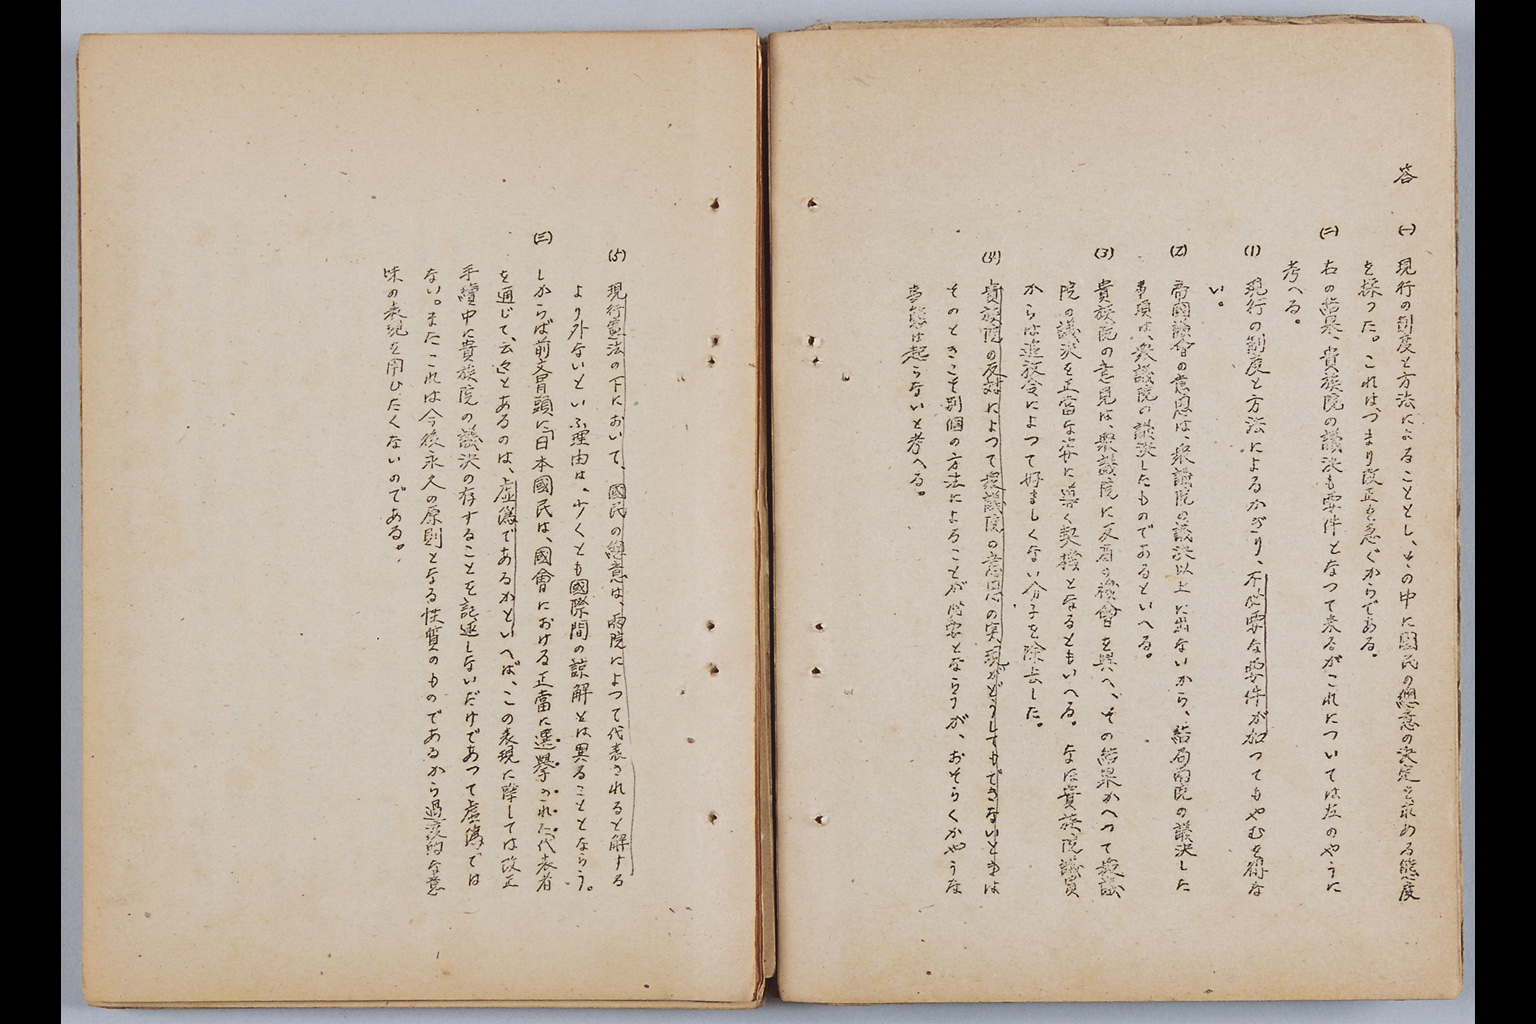 答
(一) 現行の制度と方法によることとし、その中に國民の總意の決定を求める態度
を採つた。これは、つまり改正を急ぐからである。
(二) 右の結果、貴族院の議決も要件となつて来るがこれについては左のやうに
考へる。
(1) 現行の制度と方法によるかぎり、不必要な要件が加つてもやむを得な
い。
(2) 帝國議會の意思は、衆議院の議決以上に出ないから、結局両院の議決した
事項は、衆議院の議決したものであるといへる。
(3) 貴族院の意見は、衆議院に反省の機會を與へ、その結果かへつて衆議
院の議決を正當な姿に導く契機となるともいへる。なほ貴族院議員
からは追放令によつて好ましくない分子を除去した。
(4) 貴族院の反対によつて衆議院の意思の実現がどうしてもできないときは
そのときこそ別個の方法によることが必要とならうが、おそらくかやうな
事態は起らないと考へる。
(5) 現行憲法の下において、國民の總意は、両院によつて代表されると解する
より外ないといふ理由は、少くとも國際間の諒解とは異ることとならう。
(三) しからば前文冒頭に「日本國民は、國會における正當に選擧された代表者
を通じて、云々とあるのは、虚僞であるかといへば、この表現に際しては改正
手續中に貴族院の議決の存することを記述しないだけであつて虚僞では
ない。またこれは今後永久の原則となる性質のものであるから過渡的な意
味の表現を用ひたくないのである。